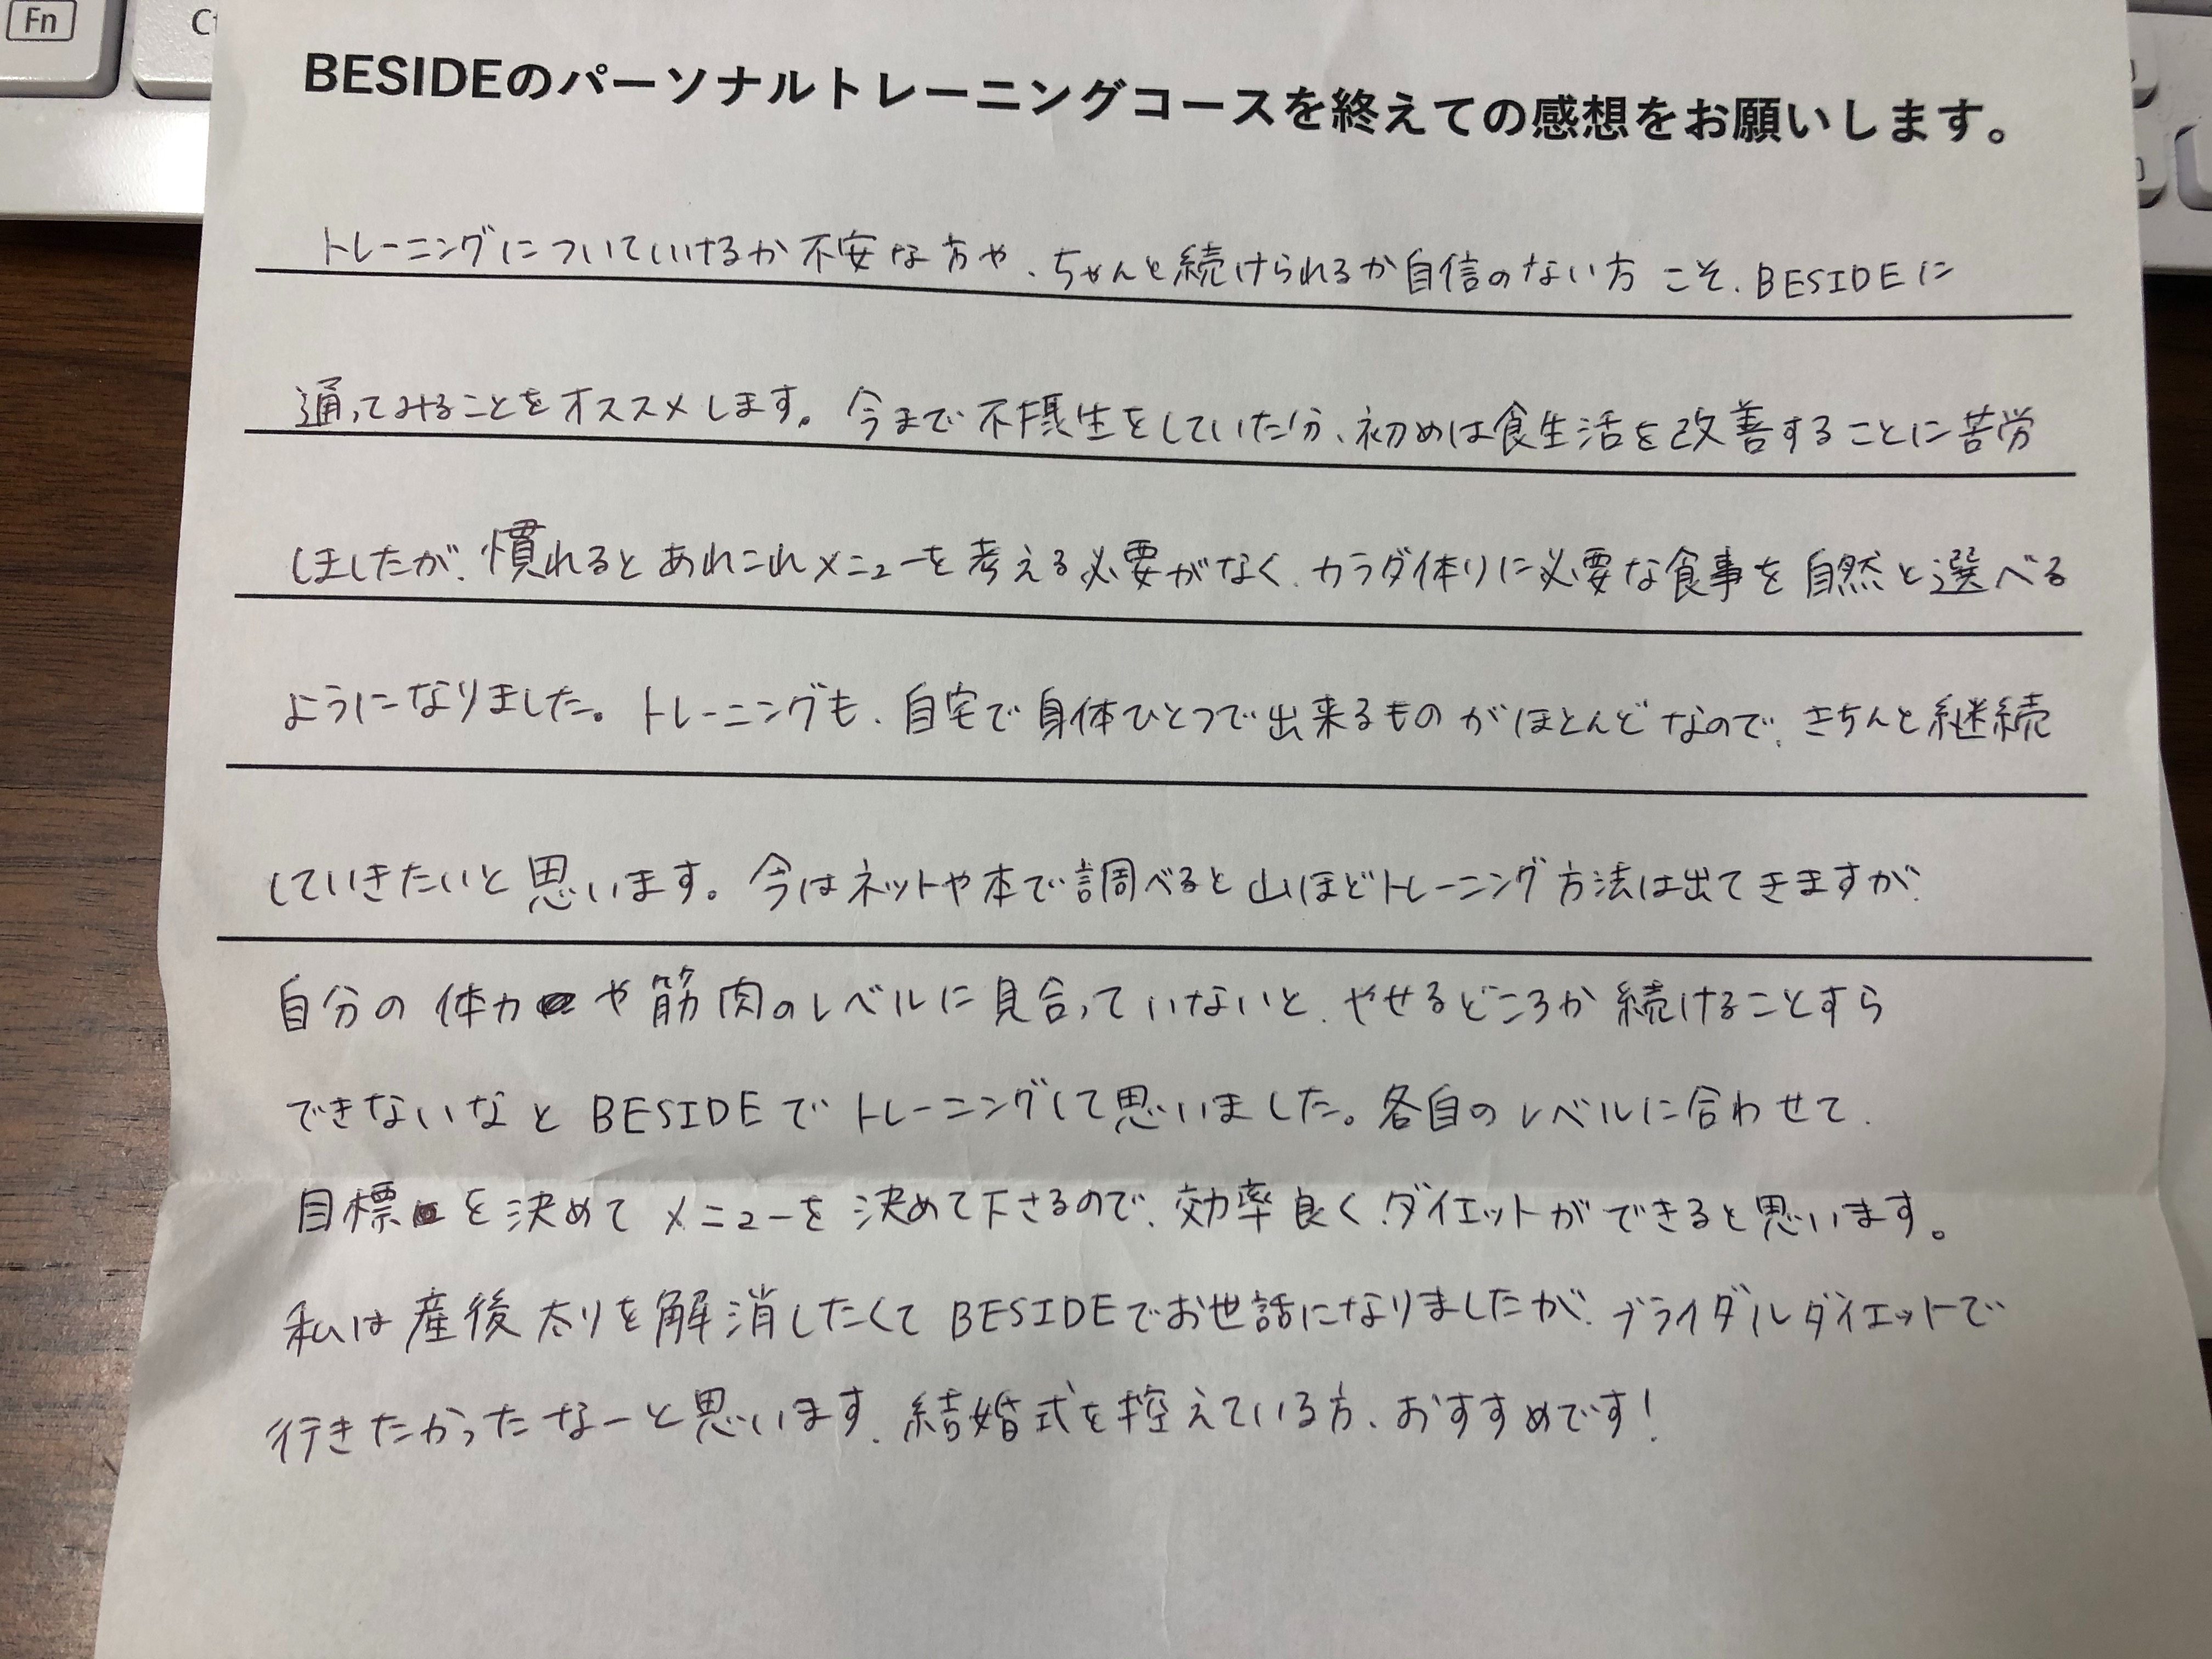 Fn
BESIDEのパーソナルトレーニングコースを終えての感想をお願いします。
トレーニングについていけるか不安な方や、ちゃんと続けられるか自信のない方こそ、BESIDEに
通ってみることをオススメします。今まで不摂生をしていた分、初めは食生活を改善することに苦労
しましたが、慣れるとあれこれメニューを考える必要がなく、カラダ作りに必要な食事を自然と選べる
ようになりました。トレーニングも、自宅で身体ひとつで出来るものがほとんどなので、きちんと継続
していきたいと思います。今はネットや本で調べると山ほどトレーニング方法は出てきますが、
自分の体力や筋肉のレベルに見合っていないと、やせるどころか続けることすら
できないなとBESIDEでトレーニングして思いました。各自のレベルに合わせて、
目標を決めてメニューを決めて下さるので、効率良くダイエットができると思います。
私は産後太りを解消したくてBESIDEでお世話になりましたが、ブライダルダイエットで
行きたかったなーと思います。結婚式を控えている方、おすすめです!